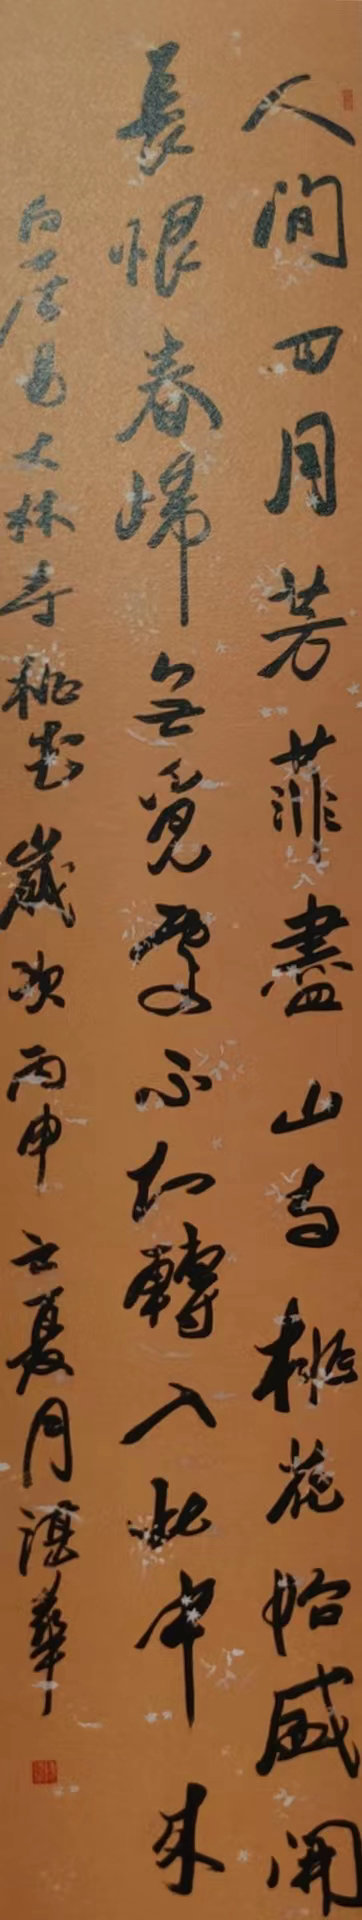 人間四月芳菲盡山寺桃花始盛開
長恨春歸無覓處不知轉入此中來
白居易大林寺桃花歲次丙申立夏月湛華